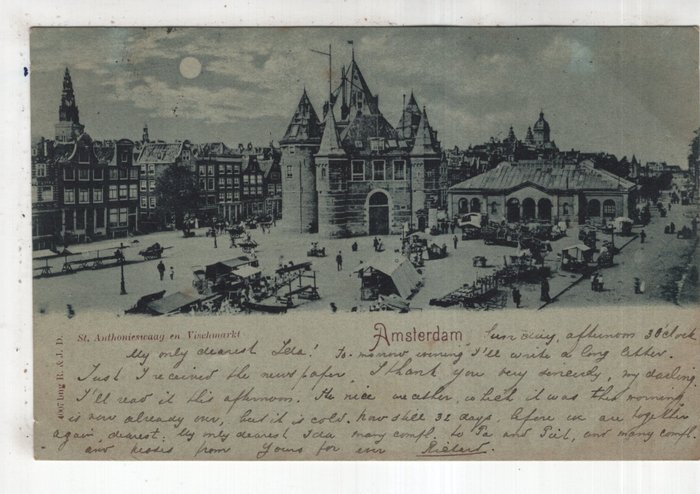 St. Anthonieswaag en Vischmarkt
Amsterdam
Sunday, afternoon 3 O'clock
My only dearest Ida! To-morrow evening I'll write a long letter.
Just I received the newspaper, I thank you very sincerely, my darling
I'll read it this afternoon. The nice weather, which it was this morning
is now already over, but it is cold. Now still 32 days, afore we are together
again, dearest. My only dearest Ida many compl. to Pa and Piet, and many compl.
and kisses from Yours for ever
4007 Dng R. & J. D.